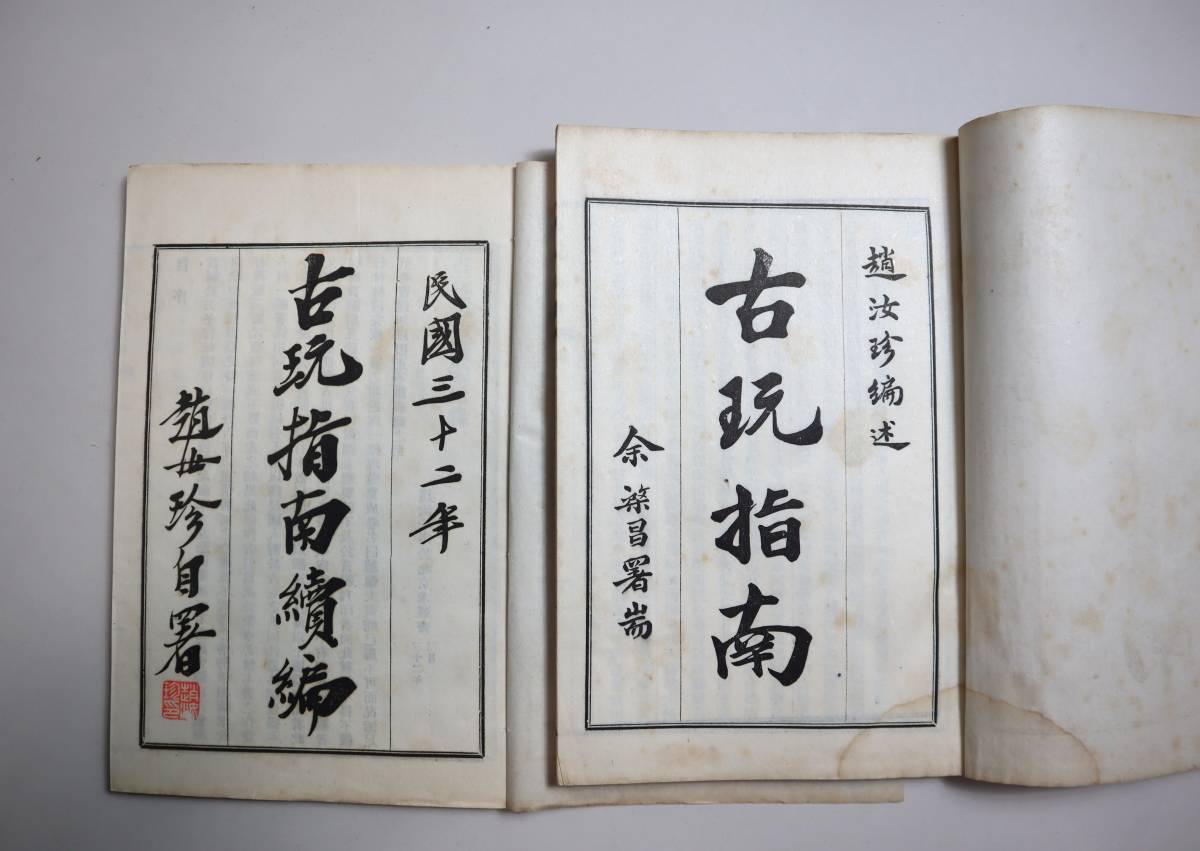 趙汝珍編述
古玩指南
余棨昌署耑
民國三十二年
古玩指南續編
趙汝珍自署
趙汝珍印